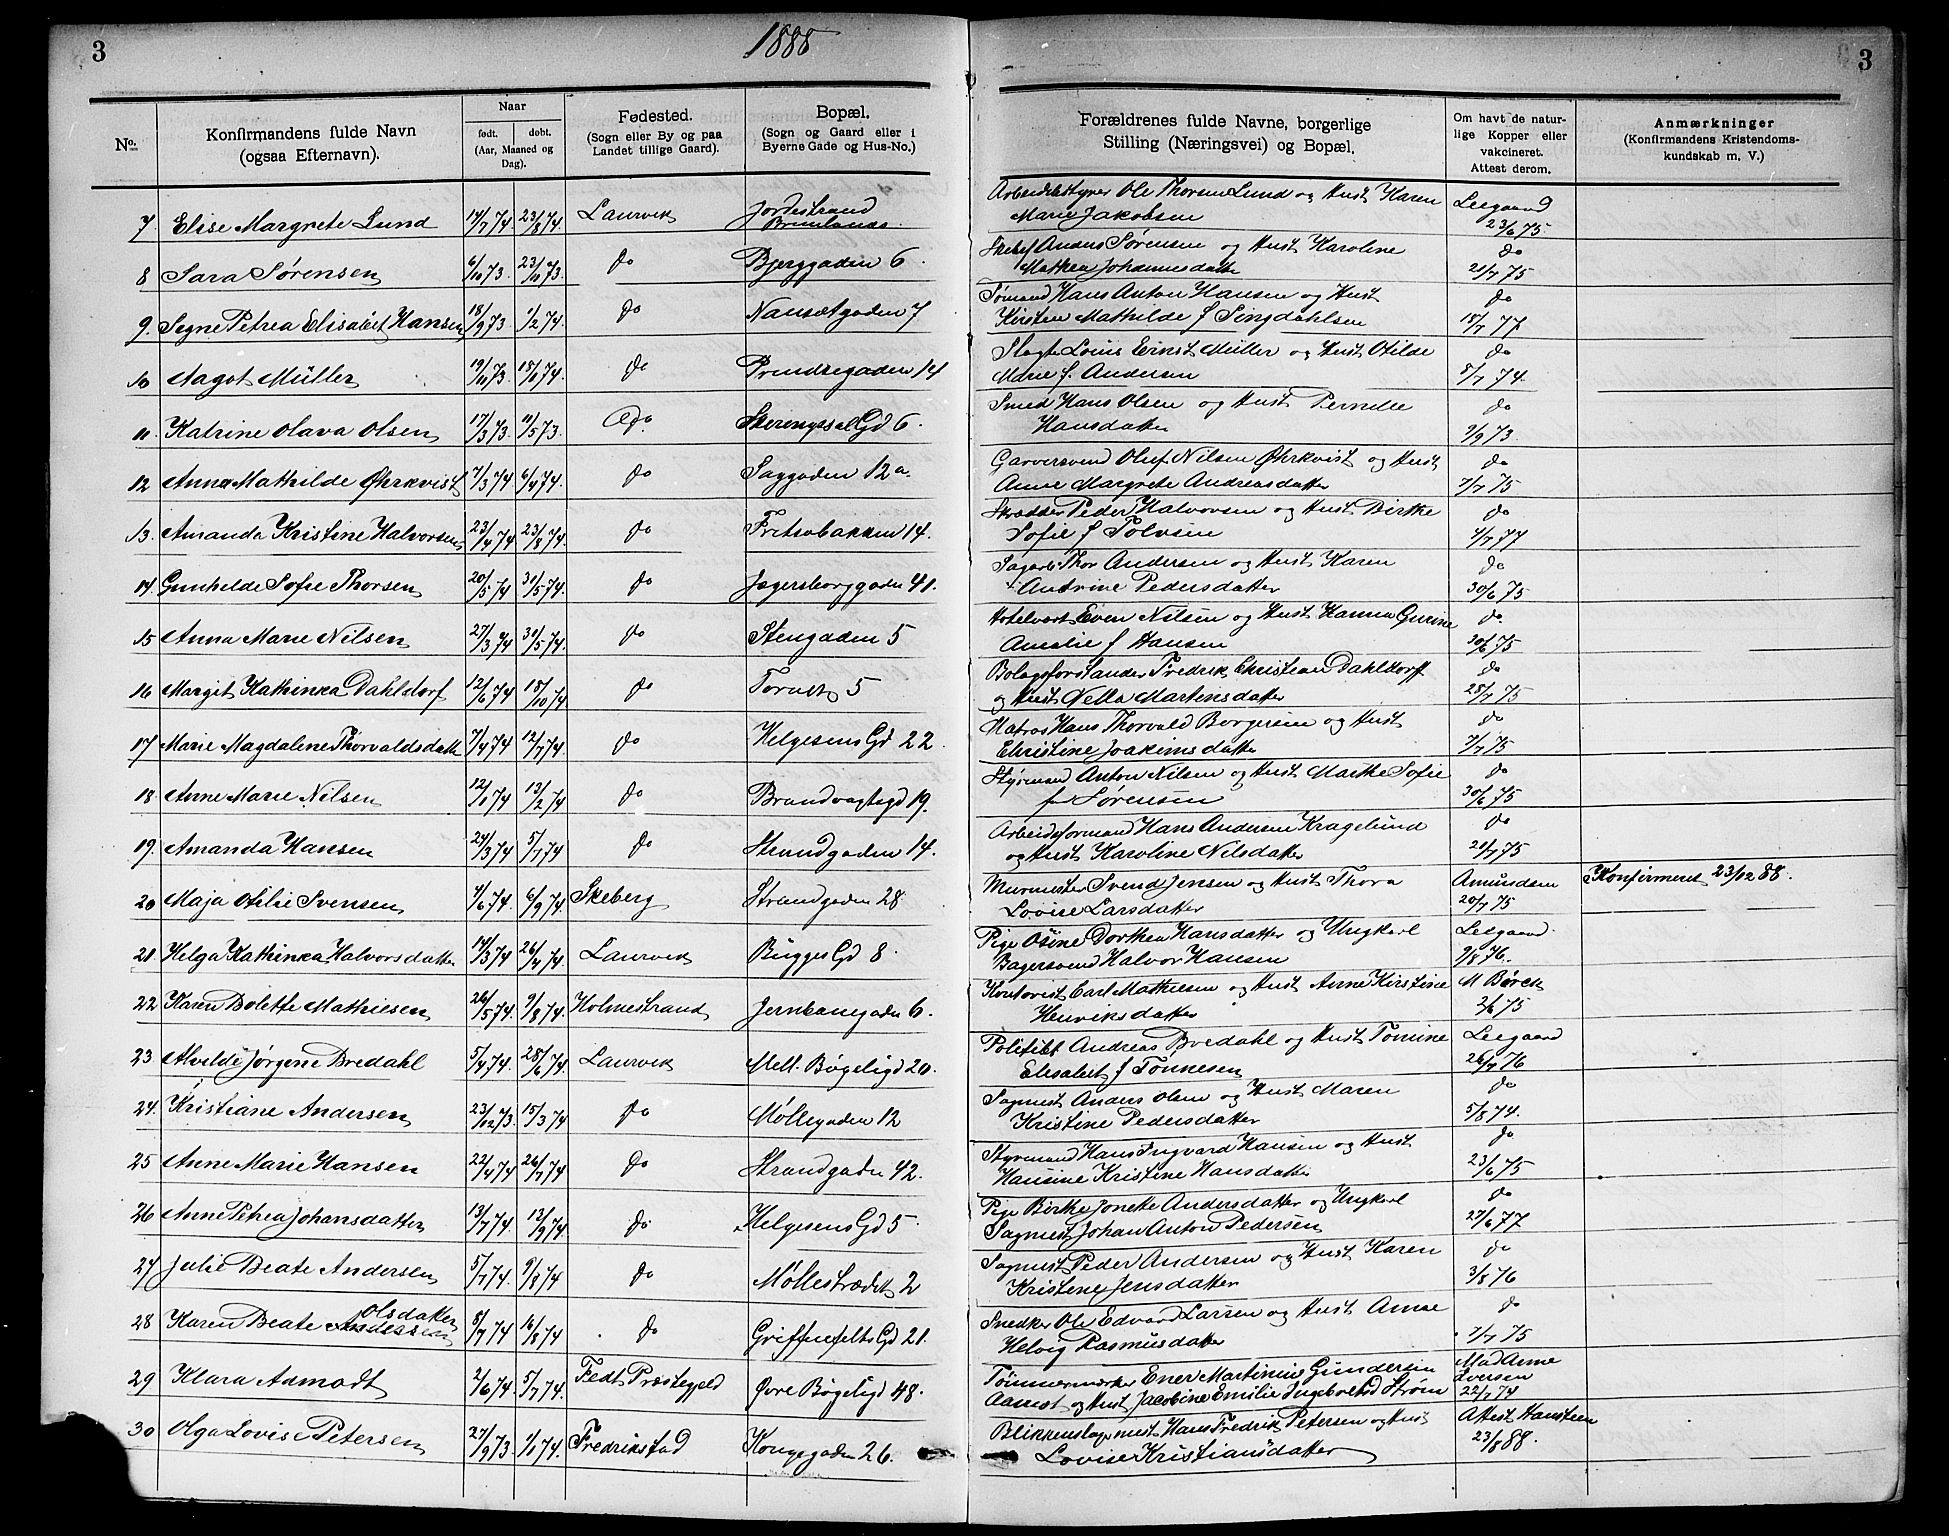 3
1888
3
No.
Konfirmandens fulde Navn
(ogsaa Efternavn).
Naar
født.
døbt.
(Aar, Maaned og
Dag).
Fødested.
(Sogn eller By og paa
Landet tillige Gaard).
Bopæl.
(Sogn og Gaard eller i
Byerne Gade og Hus-No.)
Forældrenes fulde Navne, borgerlige
Stilling (Næringsvei) og Bopæl.
Om havt de natur-
lige Kopper eller
vakcineret.
Attest derom.
Anmærkninger
(Konfirmandens Kristendoms-
kundskab m. V.)
7 Elise Margrete Lund 14/7 74 23/8 74 Laurvik Jordestrand
Brunlanæs
Arbeidsbestyrer Ole Thorsen Lund og Hust Karen
Marie Jakobsen
Leegaard
23/6 75
8 Sara Sørensen 6/10 73 23/11 73 do Bjerggaden 6
Anders Sørensen og Hust Karoline
Mathea Johannesdatter
do
21/7 75
9. Signe Petrea Elisabet Hansen 18/9 73 1/2 74 do Nansetgaden 7
Sømand Hans Anton Hansen og Hust
Kirsten Mathilde f Singdahlsen
do
18/7 77
10 Aagot Müller 19/10 73 18/1 74 do Prindsegaden 14
Slagter Louis Ernst Müller og Hust Otilde
Marie f. Andersen
do
8/7 74
11 Katrine Olava Olsen 17/3 73 11/5 73 do Skeringssal Gd 6
Smed Hans Olsen og Hust Pernille
Hansdatter
do
9/9 73
12 Anna Mathilde Øhrkvist 7/3 74 6/4 74 do Saggaden 12a
Garversvend Oluf Nilsen Øhrkvist og Hust
Anne Margrete Andreasdatter
do
7/7 75
13. Amanda Kristine Halvorsen 23/4 74 23/8 74 do Fritsøbakken 14.
Skrædder Peder Halvorsen og Hust Birthe
Sofie f Polvsen
do
4/7 77
14 Gunhilde Sofie Thorsen 20/5 74 31/5 74 do Jægersborggaden 41.
Sagarb Thor Andersen og Hust Karen
Antrine Pedersdatter
do
30/6 75
15 Anna Marie Nilsen 27/3 74 31/5 74 do Stengaden 5
Hotelvært Even Nilsen og Hust Hanna Gurine
Amalie f Hansen
do
30/6 75
16 Margit Kathinka Dahldorf 12/6 74 18/10 74 do Torvet 5
Bolagsforstander Fredrik Christian Dahldorff
og Hust Nella Martensdatter
do
28/7 75
17 Marie Magdalene Thorvaldsdatter 7/4 74 12/7 74 do Helgesens Gd 22.
Matros Hans Thorvald Borgersen og Hust
Christine Joakimsdatter
do
7/7 75
18. Anne Marie Nilsen 12/1 74 13/2 74 do Brandvagtsgd 19.
Styrmand Anton Nilsen og Hust Marthe Sofie
f Sørensen
do
30/6 75
19. Amanda Hansen 24/3 74 5/7 74 do Strandgaden 14.
Arbeidsformand Hans Andersen Kragelund
og Hust Karoline Nilsdatter
do
21/7 75
20 Maja Otilie Svensen 4/6 74 6/9 74 Skeberg Strandgaden 28
Murmester Svend Jensen og Hust Thora
Lovise Larsdatter
Amundsen
20/7 75
Konfirmeret 23/12 88.
21. Helga Kathinka Halvorsdatter 14/3 74 26/4 74 Laurvik Bugges Gd 8.
Pige Osine Dorthea Hansdatter og Ungkarl
Bagersvend Halvor Hansen
Leegaard
9/8 76
22 Karen Bolette Mathiesen 26/5 74 9/8 74 Holmestrand Jernbanegaden 6.
Kontorist Carl Mathiesen og Hust Anne Kirstine
Henriksdatter
M Børck
2/6 75
23 Alvilde Jørgine Bredahl 5/4 74 28/6 74 Laurvik Mell. Bøgeligd 20.
Politibt Andreas Bredahl og Hust Tomine
Elisabet f Tønnesen
Leegaard
26/7 76
24. Kristiane Andersen 23/12 73 15/3 74 do Møllegaden 12
Sagmest Anders Olsen og Hust Maren
Kristine Pedersdatter
do
5/8 74.
25 Anne Marie Hansen 22/4 74 26/7 74 do Strandgaden 42.
Styrmand Hans Ingvard Hansen og Hust
Hansine Kristine Hansdatter
do
23/6 75
26 Anne Petrea Johansdatter 13/7 74 13/9 74 do Helgesens Gd 5
Pige Birthe Jonette Andersdatter og Ungkarl
Sagmest Johan Anton Pedersen
do
27/6 77
27 Julie Beate Andersen 5/7 74 9/8 74 do Møllestrædet 2
Sagmest Peder Andersen og Hust Karen
Kristine Jensdatter
do
3/8 76
28 Karen Beate Olsdatter 8/7 74 16/8 74 do Griffenfelts Gd 21.
Snedker Ole Edvard Larsen og Hust Anne
Helvig Rasmusdatter
do
7/7 75
29 Klara Aamodt 2/6 74 5/7 74. Fedt Præstegjeld Øvre Bøgeligd 48.
Tømmermærker Ener Martinius Gundersen
Aamot og Hust Jacobine Emilie Ingebretsd Strøm
Mad Anne
Iversen
22/7 74
30 Olga Lovise Petersen 27/9 73 1/1 74 Fredrikstad Kongegaden 26.
Blikkenslagermest Hans Fredrik Petersen og Hust
Lovise Kristiansdatter
Attest Hansteen
23/8 88.